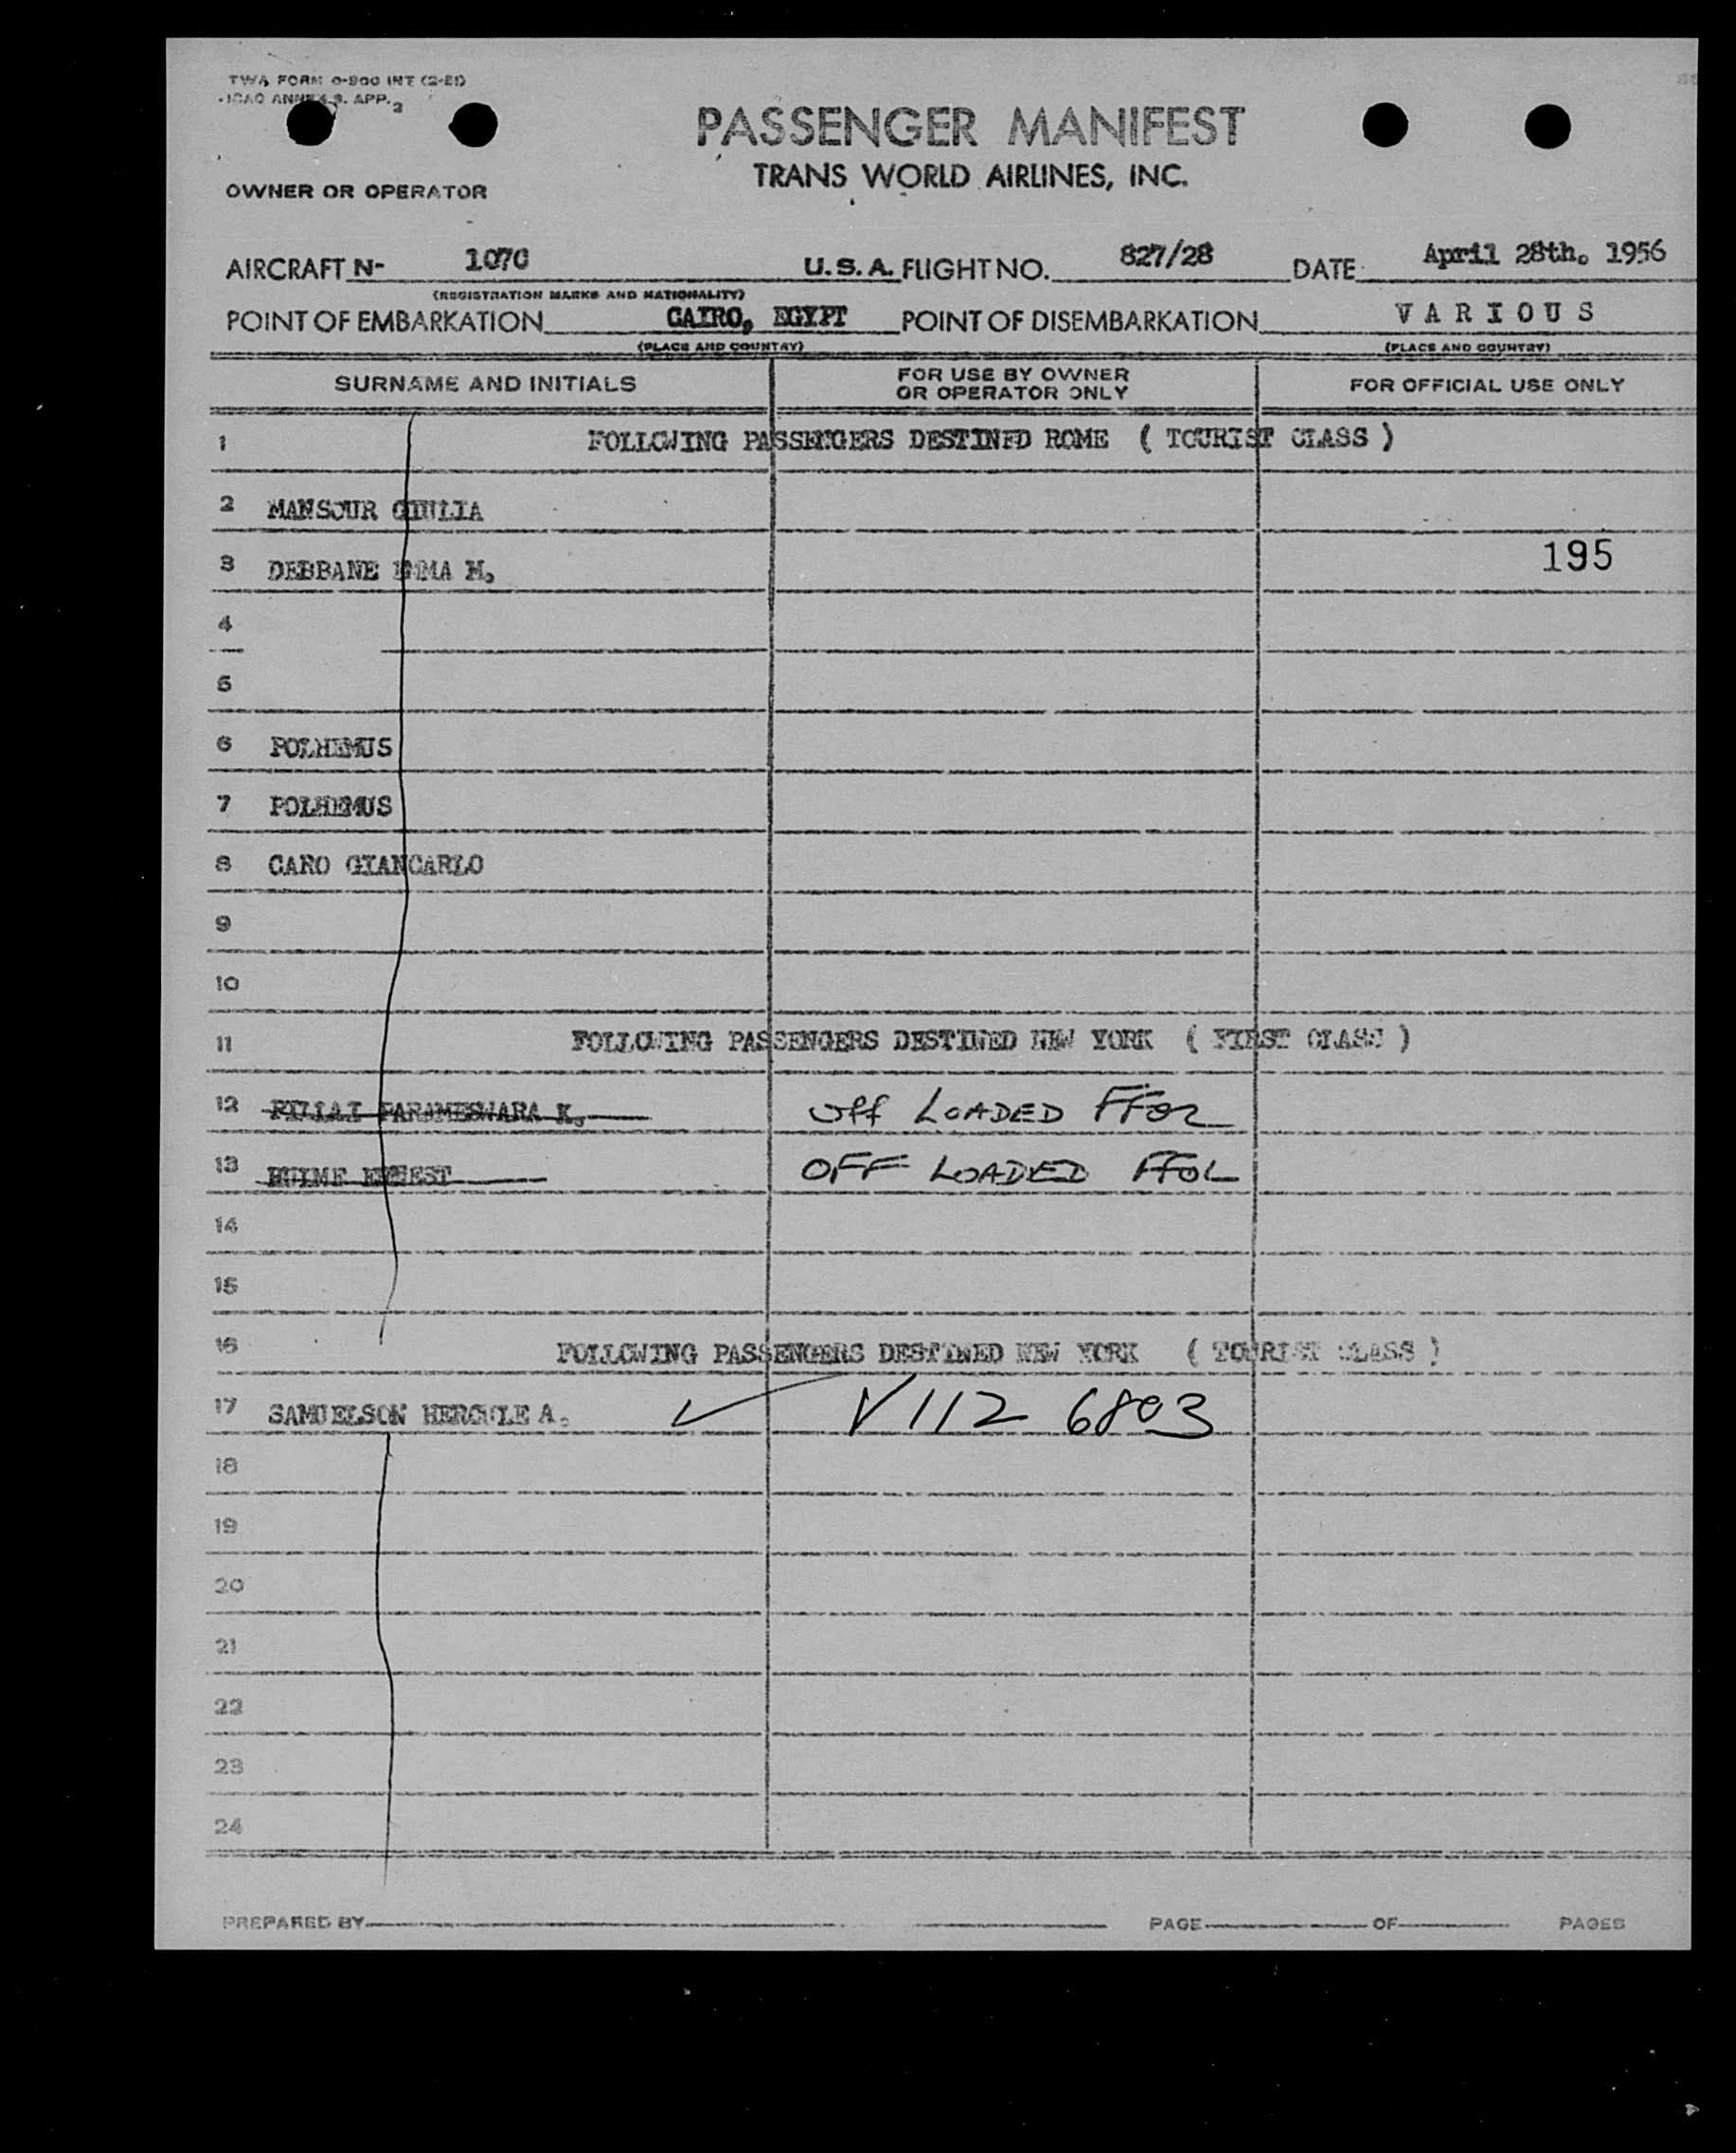 TWA FORM O-900 INT (2-51)
ICAO ANNEX 9. APP. 2
PASSENGER MANIFEST
TRANS WORLD AIRLINES, INC.
OWNER OR OPERATOR
AIRCRAFT N- 107C U.S.A. FLIGHT NO. 827/28 DATE April 28th. 1956
(REGISTRATION MARKS AND NATIONALITY)
POINT OF EMBARKATION CAIRO, EGYPT POINT OF DISEMBARKATION VARIOUS
(PLACE AND COUNTRY) (PLACE AND COUNTRY)
SURNAME AND INITIALS FOR USE BY OWNER OR OPERATOR ONLY FOR OFFICIAL USE ONLY
1 FOLLOWING PASSENGERS DESTINED ROME ( TOURIST CLASS )
2 MANSOUR GIULIA
3 DEBBANE EMMA M. 195
4
5
6 POLHEMUS
7 POLHEMUS
8 CARO GIANCARLO
9
10
11 FOLLOWING PASSENGERS DESTINED NEW YORK ( FIRST CLASS )
12 PILLAI PARAMESWARA K. Off LOADED
13 ERNEST OFF LOADED
14
15
16 FOLLOWING PASSENGERS DESTINED NEW YORK ( TOURIST CLASS )
17 SAMUELSON HERCULE A. V112 6803
18
19
20
21
22
23
24
PREPARED BY PAGE OF PAGES